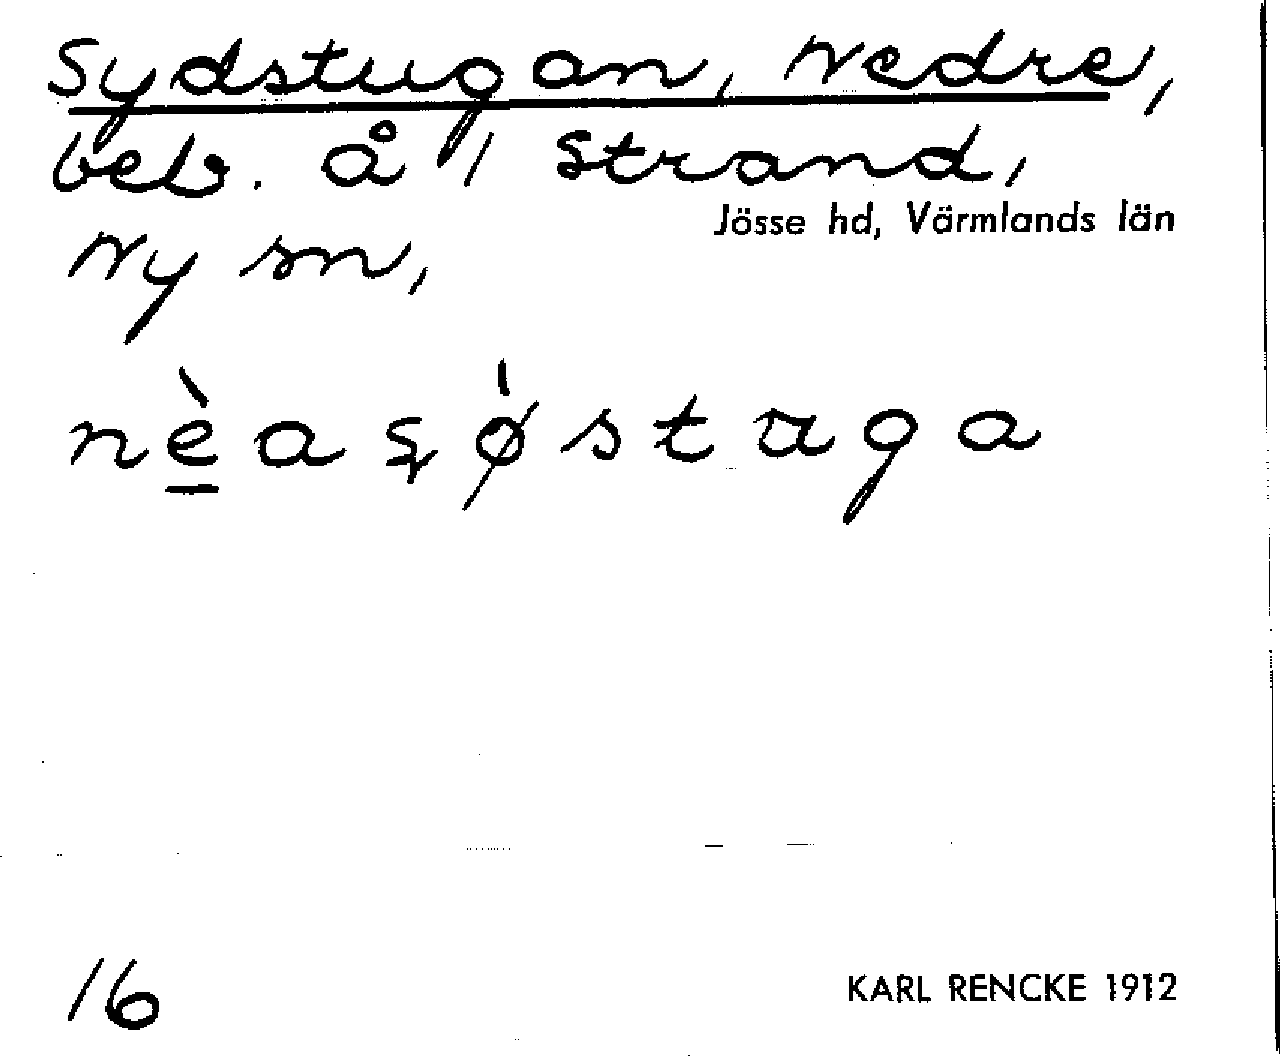 Sydstugan, Nedre,
beb. å 1/1 Strand,
Jösse hd, Värmlands län
Ny sn,
nèasǿstuga
16
KARL RENCKE 1912